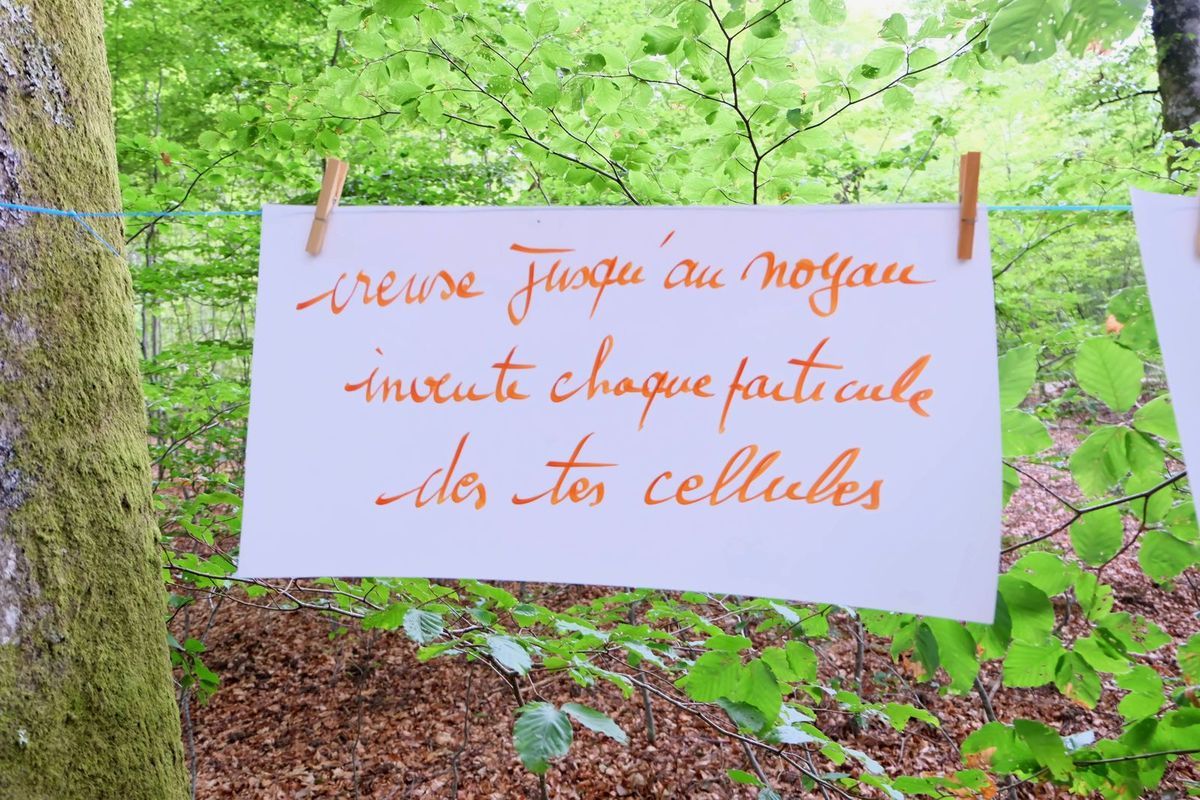 creuse jusqu'au noyau
invente chaque particule
des tes cellules